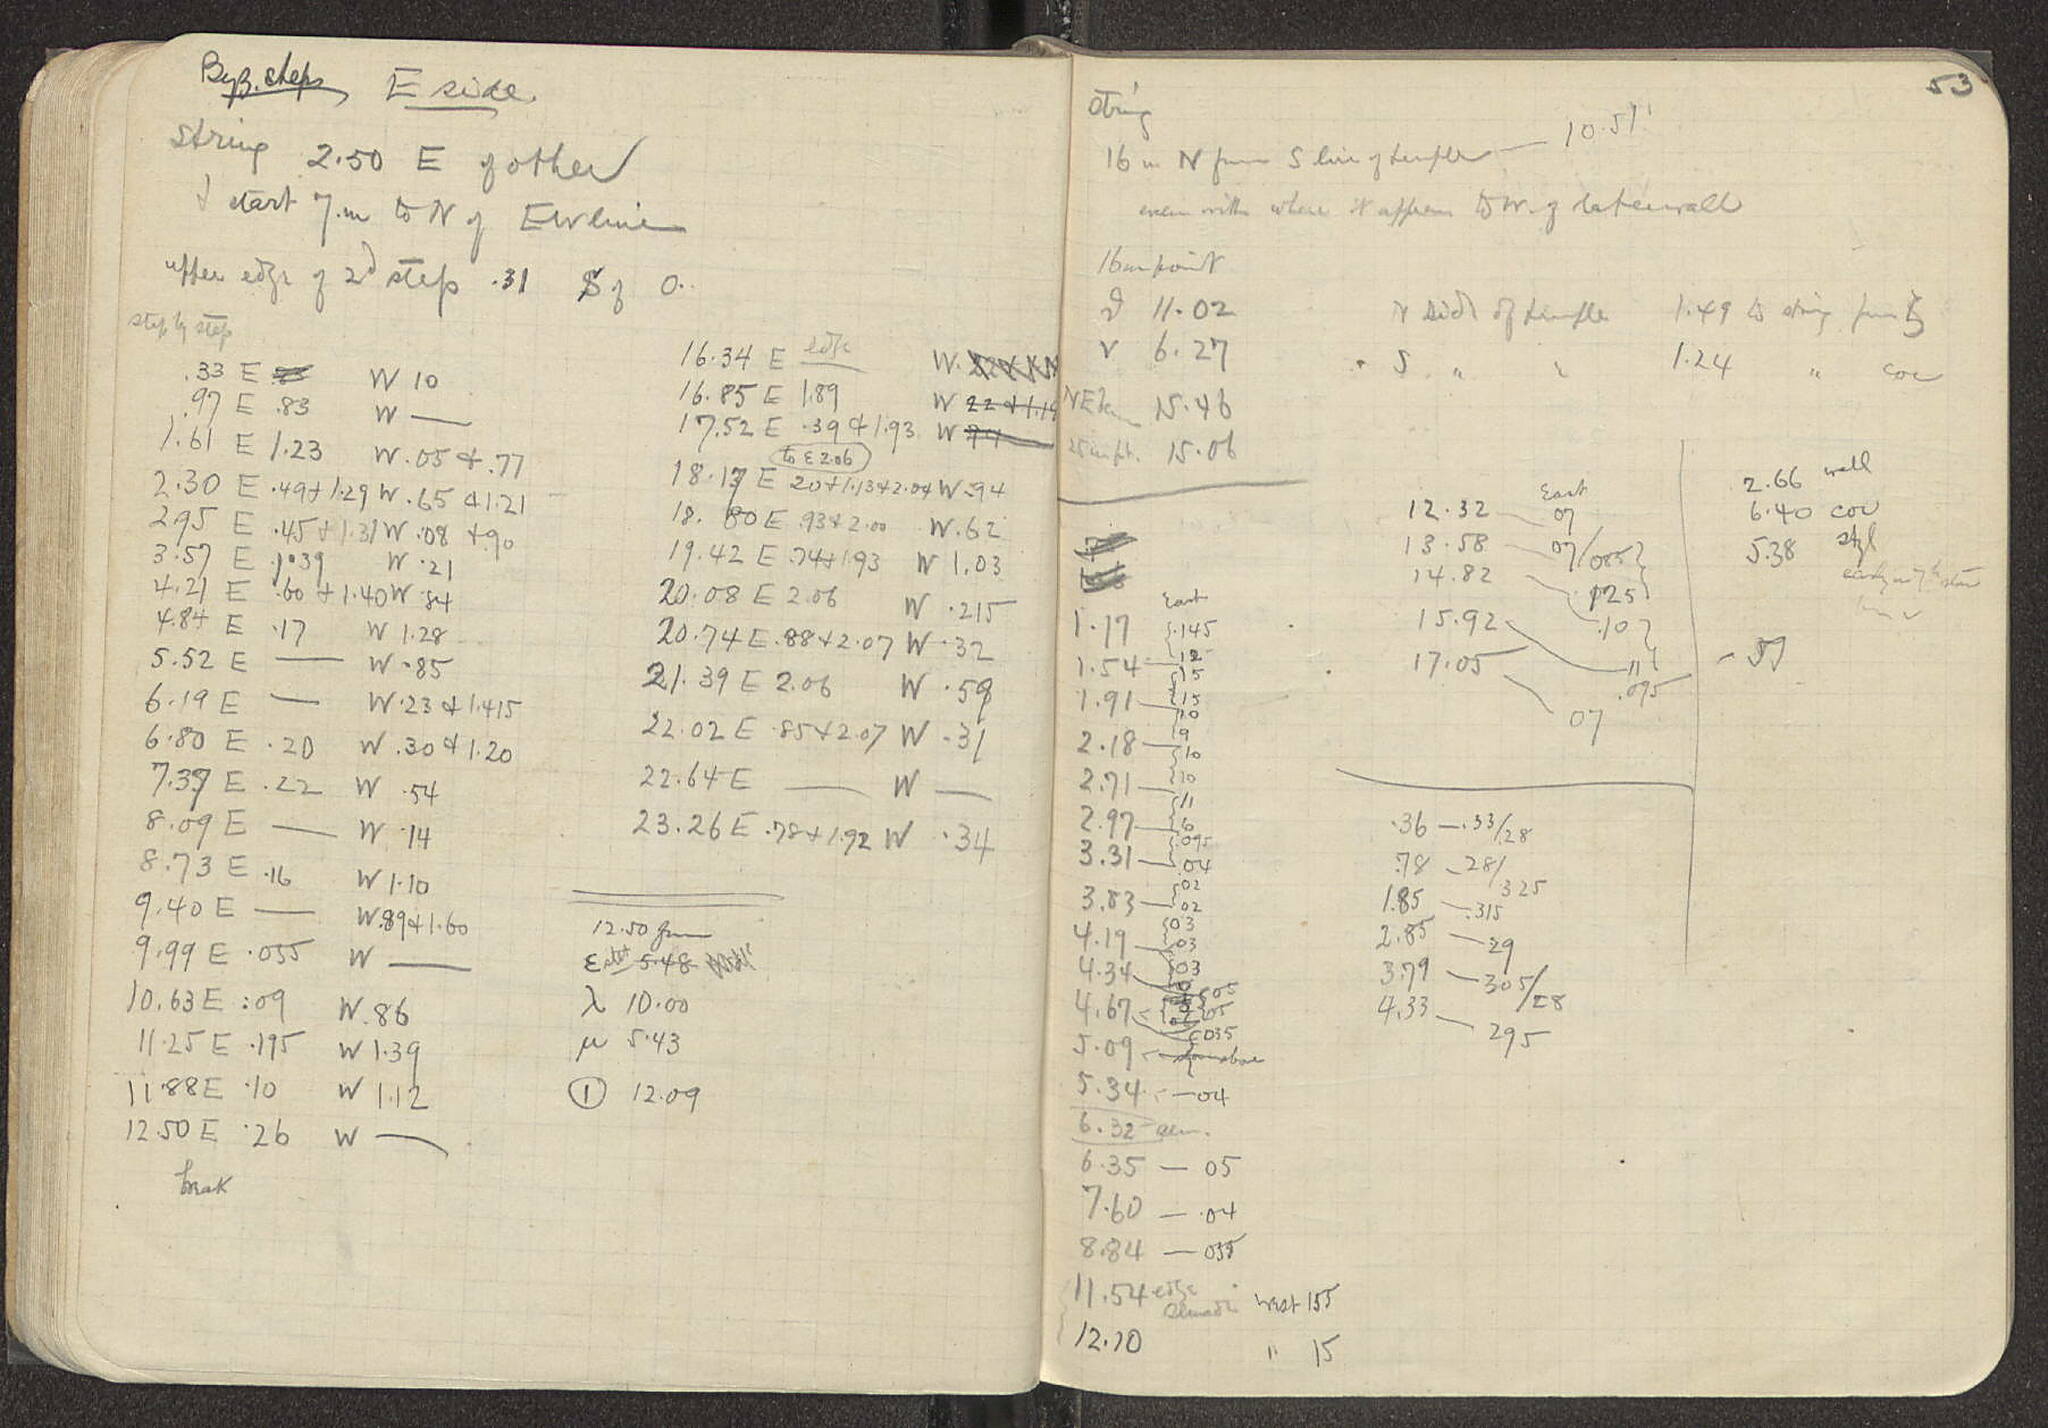 Byz. steps E side
string 2.50 E of other
& start 7.m to N of EW line
upper edge of 2d step .31 S of 0.
step by step
.33 E W 10
.97 E .83 W —
1.61 E 1.23 W .05 & .77
2.30 E .49 + 1.29 W .65 & 1.21
2.95 E .45 + 1.31 W .08 + .90
3.57 E 1.39 W .21
4.21 E .60 + 1.40 W .84
4.84 E .17 W 1.28
5.52 E — W .85
6.19 E — W .23 & 1.415
6.80 E .20 W .30 & 1.20
7.39 E .22 W .54
8.09 E — W .14
8.73 E .16 W 1.10
9.40 E — W .89 & 1.60
9.99 E .055 W —
10.63 E .09 W .86
11.25 E .195 W 1.39
11.88 E .10 W 1.12
12.50 E .26 W —
break
16.34 E edge W.
16.85 E 1.89 W 22 & 1.19
17.52 E .39 & 1.93 W 74
to E 2.06
18.17 E 20 + 1.13 + 2.04 W .94
18.80 E .93 + 2.00 W .62
19.42 E .74 + 1.93 W 1.03
20.08 E 2.06 W .215
20.74 E .88 + 2.07 W .32
21.39 E 2.06 W .59
22.02 E .85 + 2.07 W .31
22.64 E — W —
23.26 E .78 + 1.92 W .34
12.50 from
ε 5.48
λ 10.00
μ 5.43
① 12.09
53
String
16 m N from S line of temple — 10.51
even with where it appears to W. of later wall
16 m point
ϑ 11.02 N side of temple 1.49 to string from
ν 6.27 " S " " 1.24 " cor
NE 15.46
25 m pt. 15.06
East
1.17 .145
1.54 12
15
1.91 15
10
2.18 9
10
2.71 10
11
2.97 6
.095
3.31 .04
02
3.83 02
03
4.19 03
4.34 03
05
4.67 05
035
5.09
5.34 — 04
6.32
6.35 — 05
7.60 — .04
8.84 — 035
11.54 edge West 155
12.10 " 15
East
12.32 07
13.58 07/085
14.82 125
15.92 .10
11
17.05 .095
07
2.66 wall
6.40 cor
5.38 styl
.36 — .33/.28
.78 — 28/325
1.85 — .315
2.85 — 29
3.79 — 305/28
4.33 — 295